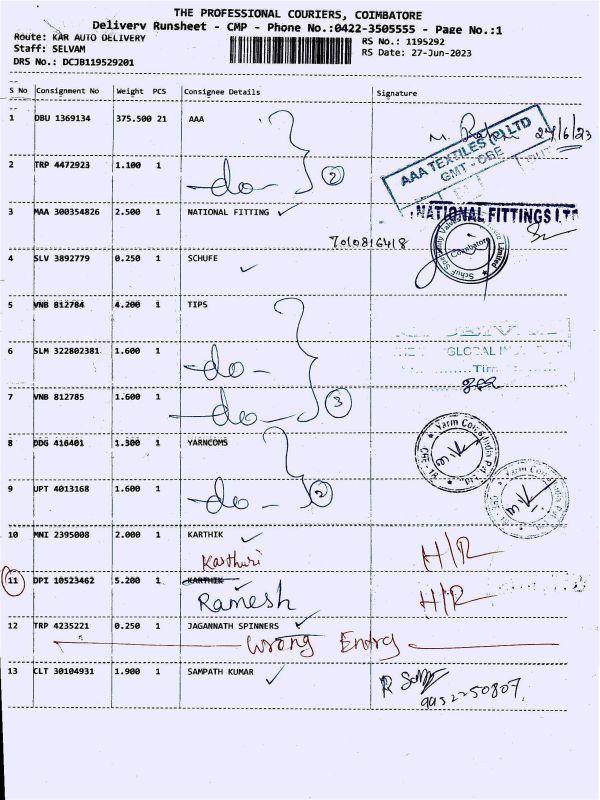 THE PROFESSIONAL COURIERS, COIMBATORE
Delivery Runsheet - CMP - Phone No.:0422-3505555 - Page No.:1
Route: KAR AUTO DELIVERY
RS No.: 1195292
Staff: SELVAM
RS Date: 27-Jun-2023
DRS No.: DCJB119529201
S No Consignment No Weight PCS Consignee Details Signature
1 DBU 1369134 375.500 21 AAA 27/6/23
AAA TEXTILES (P) LTD
GMT - CBE
2 TRP 4472923 1.100 1 -do- 2
3 MAA 300354826 2.500 1 NATIONAL FITTING NATIONAL FITTINGS LTD
7010816418
Coimbatore
4 SLV 3892779 0.250 1 SCHUFE
5 VNB 812784 4.200 1 TIPS
6 SLM 322802381 1.600 1 -do- GLOBAL
7 VNB 812785 1.600 1 -do- 3
8 DDG 416401 1.300 1 YARNCOMS
9 UPT 4013168 1.600 1 -do- 2
10 MNI 2395008 2.000 1 KARTHIK
Karthuri H/R
11 DPI 10523462 5.200 1 KARTHIK
Ramesh H/R
12 TRP 4235221 0.250 1 JAGANNATH SPINNERS
Wrong Entry
13 CLT 30104931 1.900 1 SAMPATH KUMAR
9952250807